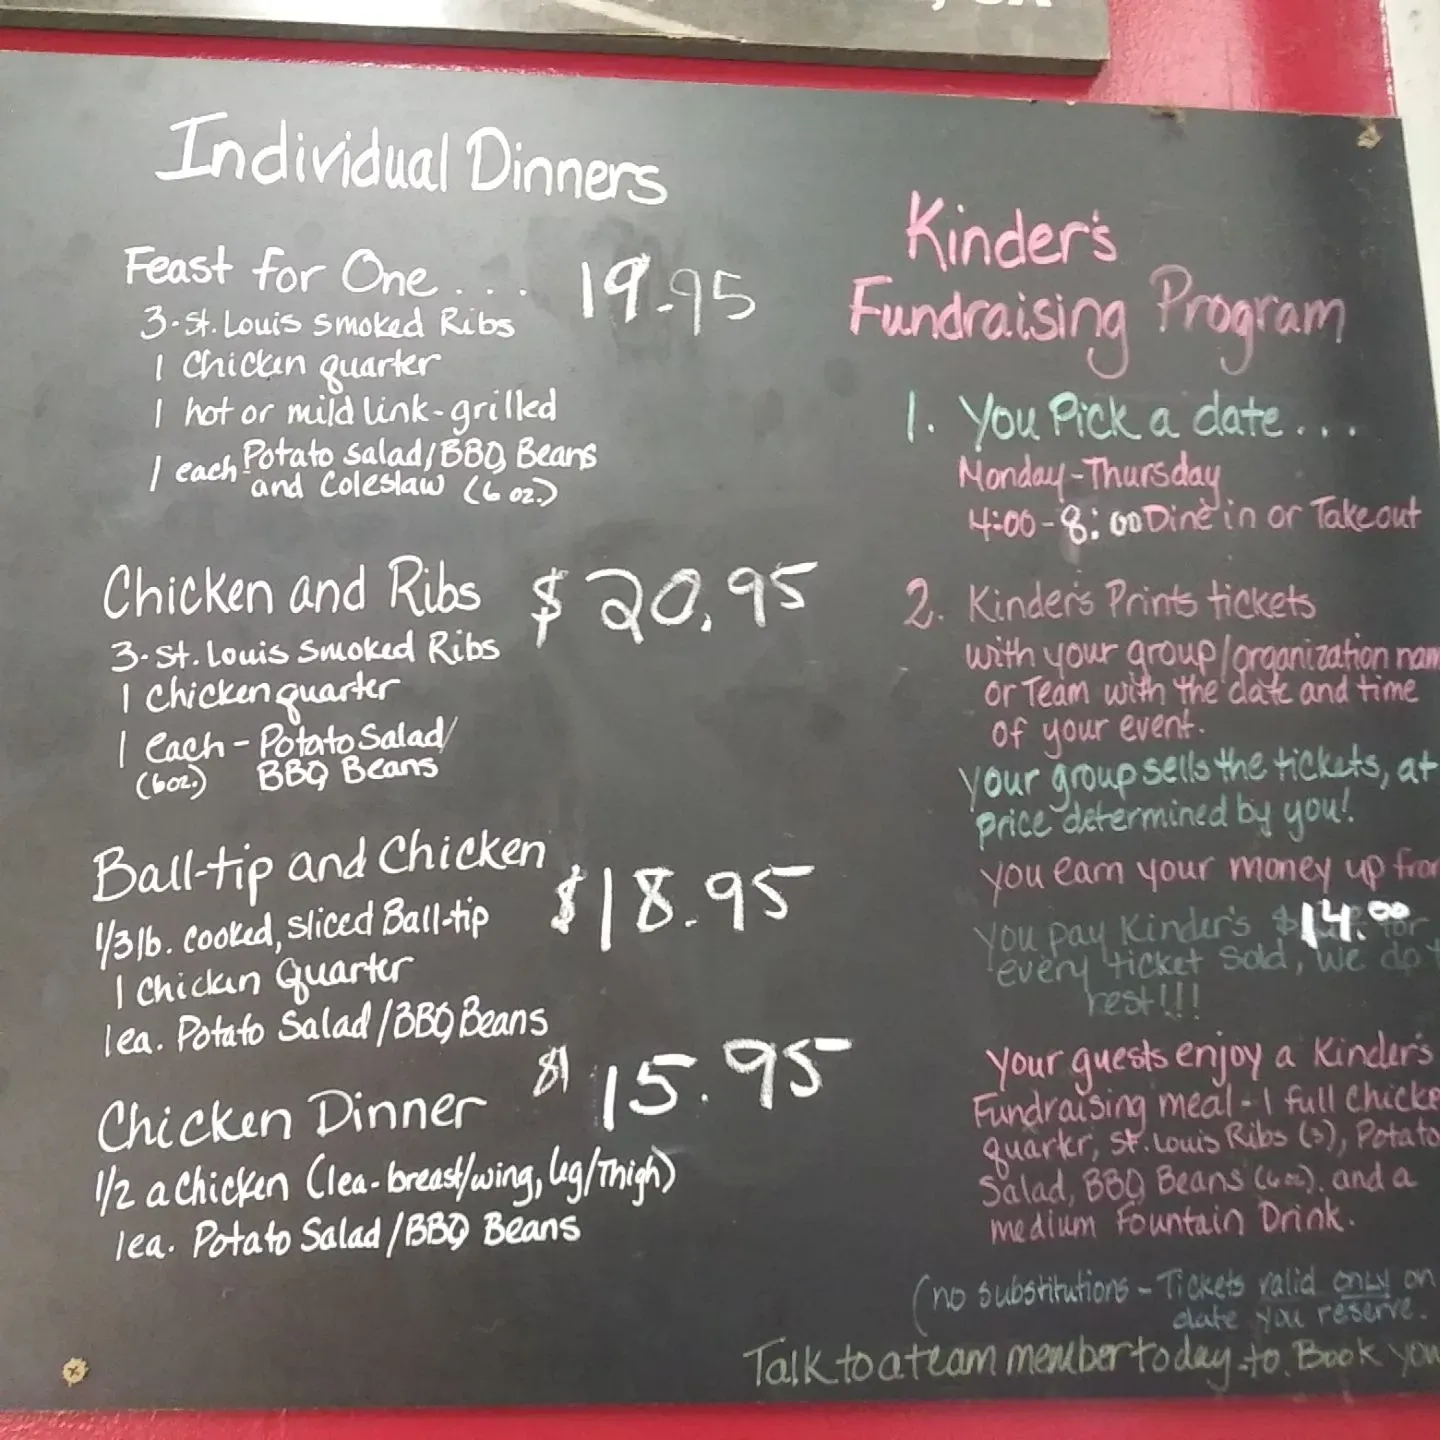 Individual Dinners
Feast for One... 19.95
3-St. Louis Smoked Ribs
1 Chicken quarter
1 hot or mild link-grilled
1 each-Potato Salad/BBQ Beans
and Coleslaw (6 oz.)
Chicken and Ribs $20.95
3-St. Louis Smoked Ribs
1 Chicken quarter
1 Each - Potato Salad/
(6oz.) BBQ Beans
Ball-tip and Chicken $18.95
1/3 lb. cooked, sliced Ball-tip
1 Chicken Quarter
1ea. Potato Salad/BBQ Beans
Chicken Dinner $15.95
1/2 a chicken (1ea-breast/wing, leg/Thigh)
1ea. Potato Salad/BBQ Beans
Kinder's
Fundraising Program
1. You Pick a date...
Monday-Thursday
4:00-8:00 Dine in or Takeout
2. Kinder's Prints tickets
with your group/organization nam
or Team with the date and time
of your event.
your group sells the tickets, at
price determined by you!
you earn your money up fron
You pay Kinder's $14.00 for
every ticket sold, we do t
rest!!!
Your guests enjoy a Kinder's
Fundraising meal-1 full Chicke
quarter, St. Louis Ribs (3), Potato
Salad, BBQ Beans (6oz). and a
medium Fountain Drink.
(no substitutions - Tickets valid only on
date you reserve.
Talk to a team member today to Book you